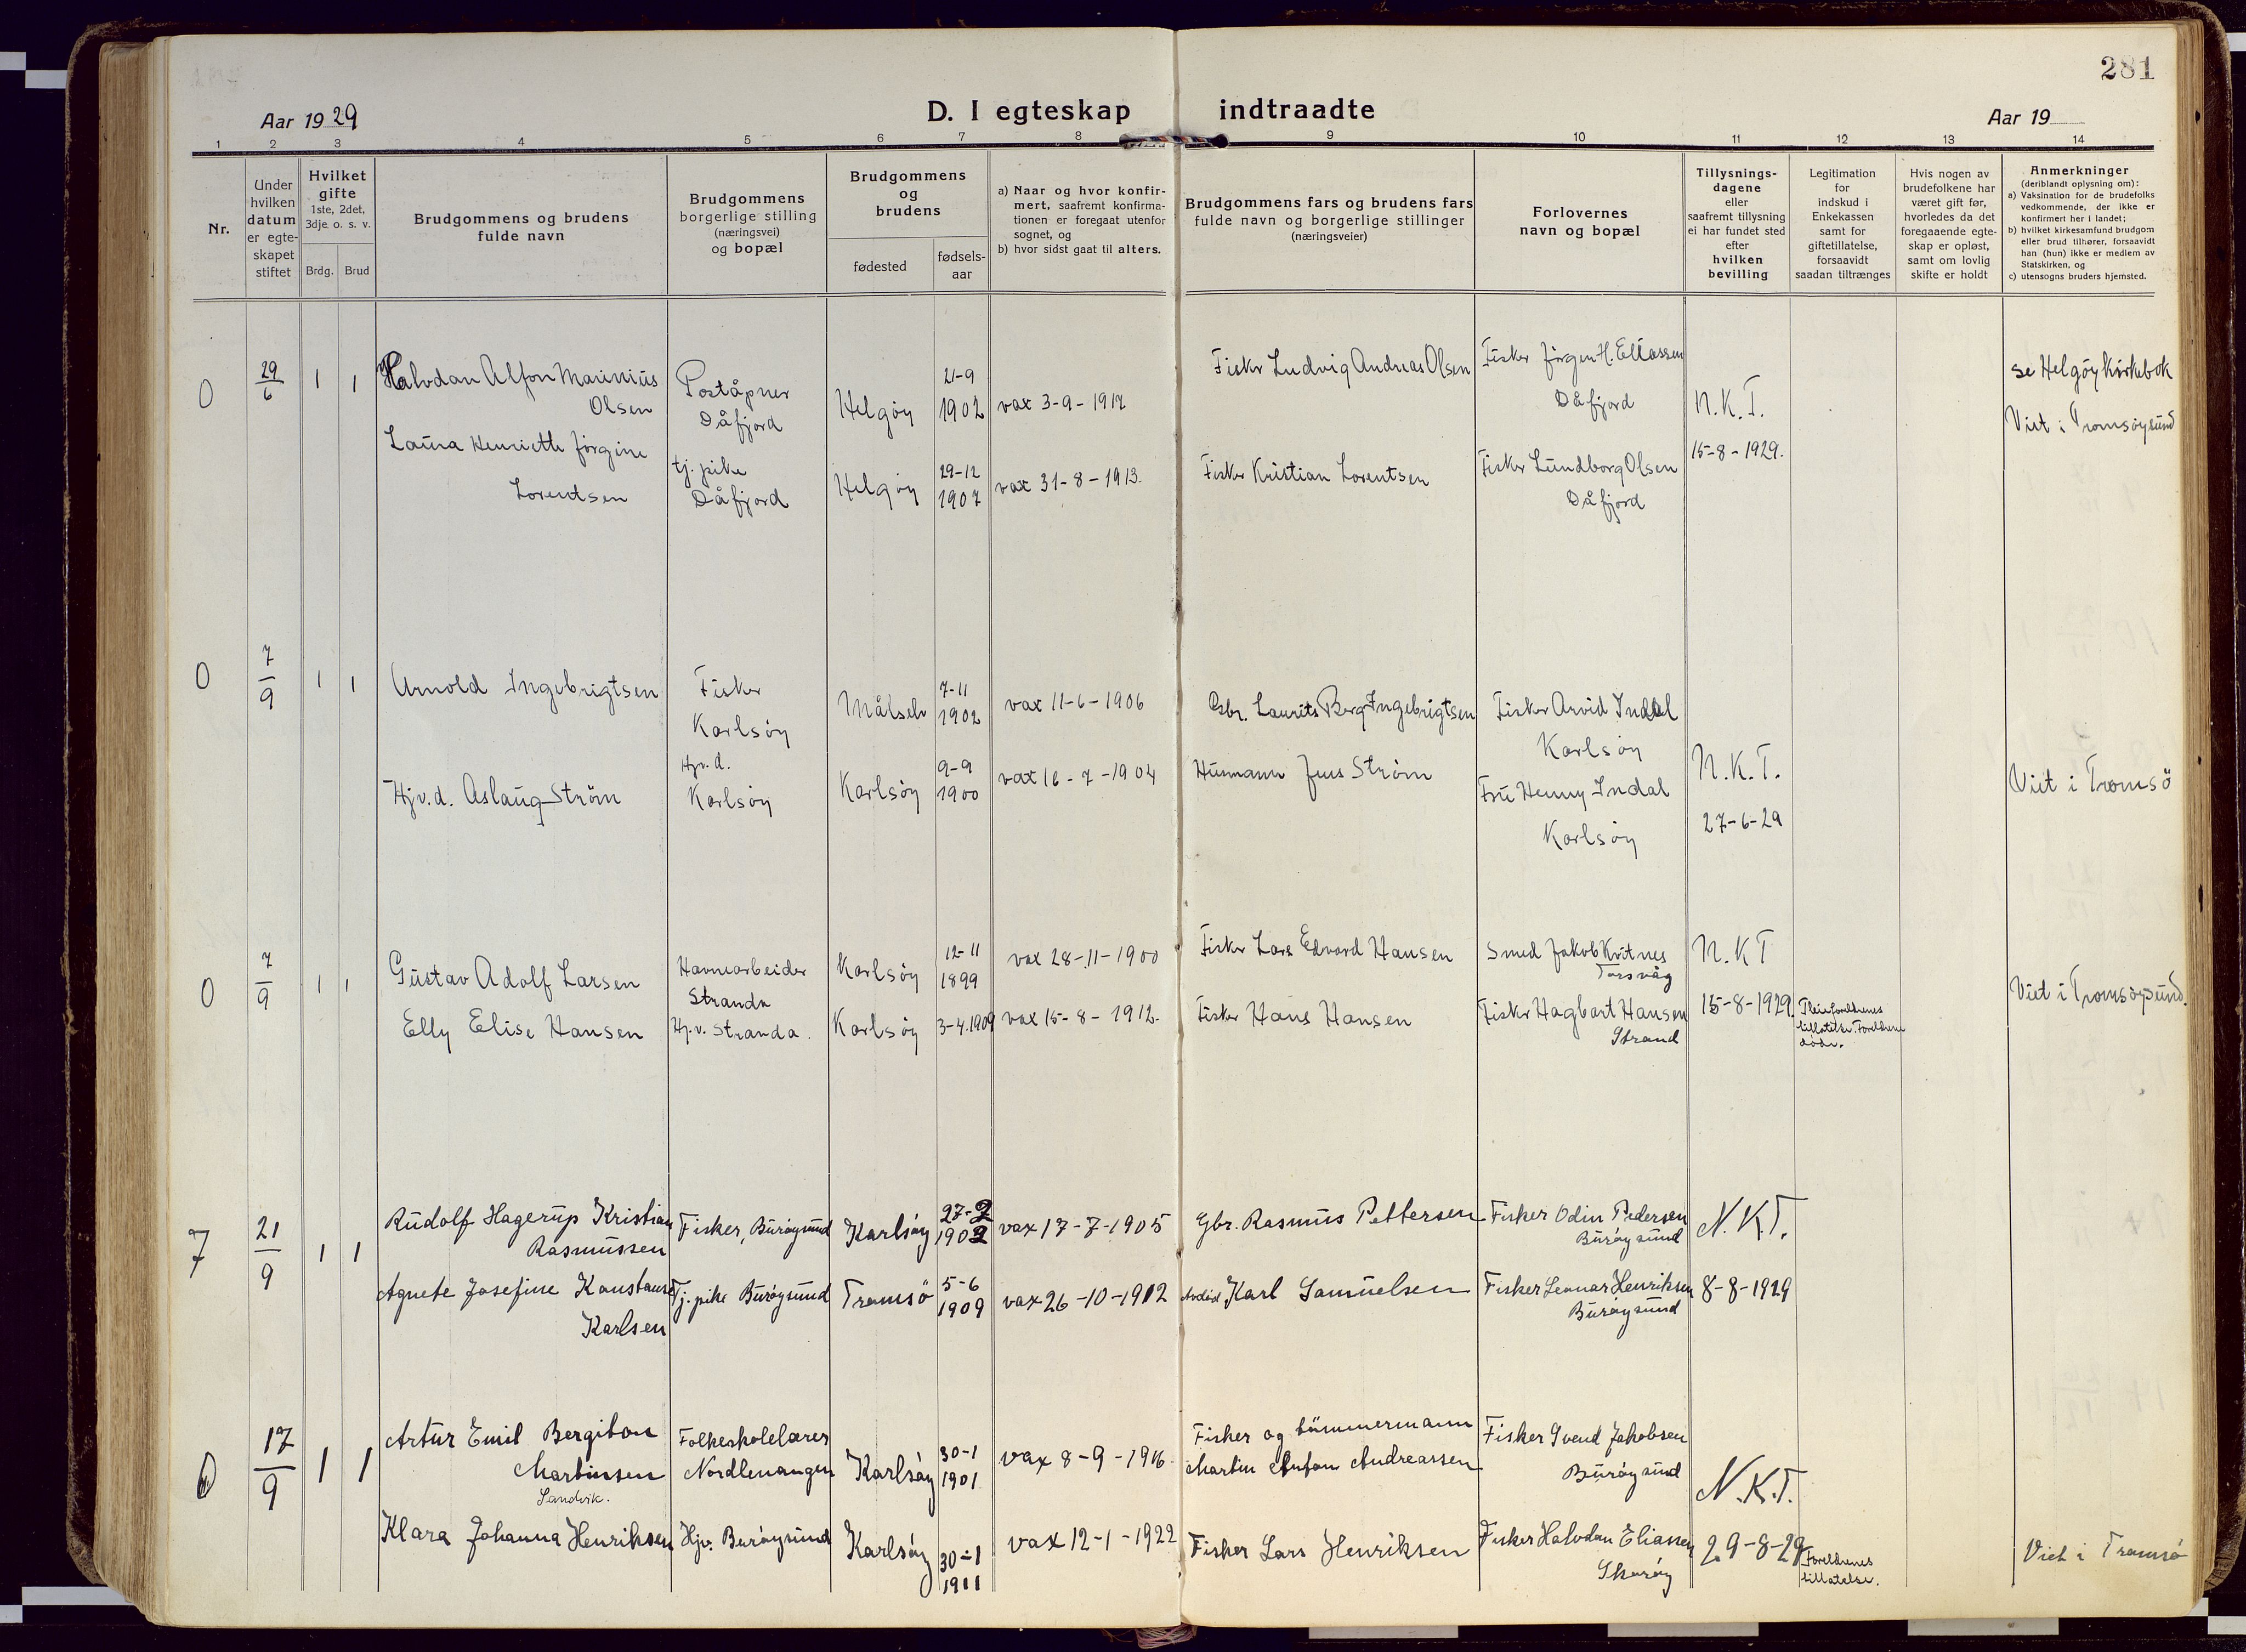 281
Aar 1929
D. I egteskap indtraadte
Aar 19
1 2 3 4 5 6 7 8 9 10 11 12 13 14
Nr.
Under
hvilken
datum
er egte-
skapet
stiftet
Hvilket
gifte
1ste, 2det,
3dje o. s. v.
Brdg. Brud
Brudgommens og brudens
fulde navn
Brudgommens
borgerlige stilling
(næringsvei)
og bopæl
Brudgommens
og
brudens
fødested
fødsels-
aar
a) Naar og hvor konfir-
mert, saafremt konfirma-
tionen er foregaat utenfor
sognet, og
b) hvor sidst gaat til alters.
Brudgommens fars og brudens fars
fulde navn og borgerlige stillinger
(næringsveier)
Forlovernes
navn og bopæl
Tillysnings-
dagene
eller
saafremt tillysning
ei har fundet sted
efter
hvilken
bevilling
Legitimation
for
indskud i
Enkekassen
samt for
giftetillatelse,
forsaavidt
saadan tiltrænges
Hvis nogen av
brudefolkene har
været gift før,
hvorledes da det
foregaaende egte-
skap er opløst,
samt om lovlig
skifte er holdt
Anmerkninger
(deriblandt oplysning om):
a) Vaksination for de brudefolks
vedkommende, der ikke er
konfirmert her i landet;
b) hvilket kirkesamfund brudgom
eller brud tilhører, forsaavidt
han (hun) ikke er medlem av
Statskirken, og
c) utensogns bruders hjemsted.
0 29/6 1 1
Halvdan Alfon Marinius
Olsen
Poståpner
Dåfjord
Helgøy
21-9
1902
vax 3-9-1912
Fisker Ludvig Andreas Olsen
Fisker Jörgen H. Eliassen
Dåfjord
N.K.T.
15-8-1929.
se Helgöy Kirkebok
Viet i Tromsøysund
Laura Henriette Jörgine
Lorentsen
tj. pike
Dåfjord
Helgøy
29-12
1907
vax 31-8-1913.
Fisker Kristian Lorentsen
Fisker Lundborg Olsen
Dåfjord
0 7/9 1 1
Arnold Ingebrigtsen
Fisker
Karlsöy
Målselv
7-11
1902
vax 11-6-1906
Gbr. Laurits Berg Ingebrigtsen
Fisker Arvid Indal
Karlsöy
N.K.T.
27-6-29
Viet i Tromsö
Hjv.d. Aslaug Ström
Hjv.d.
Karlsöy
Karlsöy
9-9
1900
vax 16-7-1904
Husmann Jens Ström
Fru Henny Indal
Karlsöy
0 7/9 1 1
Gustav Adolf Larsen
Havnearbeider
Stranda
Karlsöy
12-11
1899
vax 28-11-1900
Fisker Lars Edvard Hansen
Smed Jakob Kvitnes
Torsvåg
N.K.T
15-8-1929.
Viet i Tromsöysund.
Elly Elise Hansen
Hj.v. Stranda.
Karlsöy
3-4.1909
vax 15-8-1912.
Fisker Hans Hansen
Fisker Hagbart Hansen
Strand
tillatelse. Foreldrene
døde.
7 21/9 1 1
Rudolf Hagerup Kristian
Rasmussen
Fisker, Buröysund
Karlsöy
27-2
1902
vax 17-7-1905
Gbr. Rasmus Pettersen
Fisker Odin Pedersen
Buröysund
N.K.T.
8-8-1929
Agnete Josefine Konstanse
Karlsen
Tj. pike Buröysund
Tromsö
5-6
1909
vax 26-10-1912
Avdöd Karl Samuelsen
Fisker Leonar Henriksen
Buröysund
0 17/9 1 1
Artur Emil Bergiton
Martinsen
Sandvik.
Folkeskolelærer
Nordlenangen
Karlsöy
30-1
1901
vax 8-9-1916.
Fisker og tömmermann
Martin Anton Andreassen
Fisker Svend Jakobsen
Buröysund
N.K.T.
29-8-29
Klara Johanna Henriksen
Hjv. Buröysund
Karlsöy
30-1
1911
vax 12-1-1922
Fisker Lars Henriksen
Fisker Halvdan Eliassen
Skaröy
Foreldrenes
tillatelse.
Viet i Tromsö